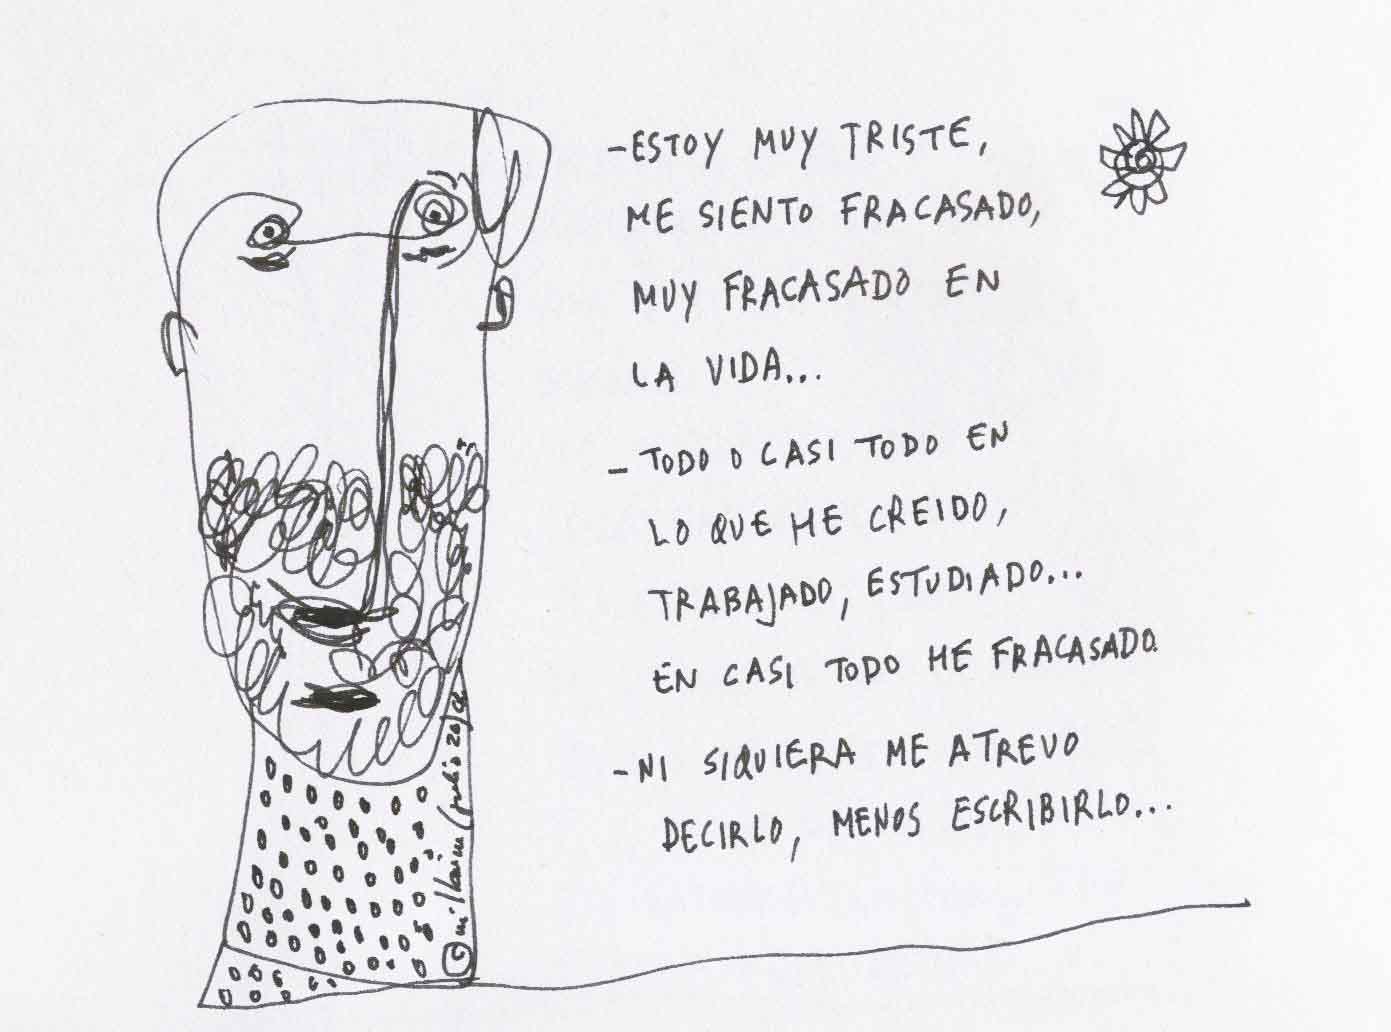 -ESTOY MUY TRISTE,
ME SIENTO FRACASADO,
MUY FRACASADO EN
LA VIDA...
- TODO O CASI TODO EN
LO QUE HE CREIDO,
TRABAJADO, ESTUDIADO...
EN CASI TODO HE FRACASADO.
-NI SIQUIERA ME ATREVO
DECIRLO, MENOS ESCRIBIRLO...
©